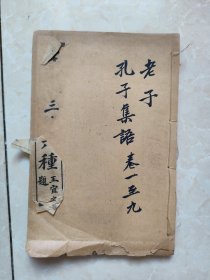 老子
孔子集語 卷一至九
三
種
王
題